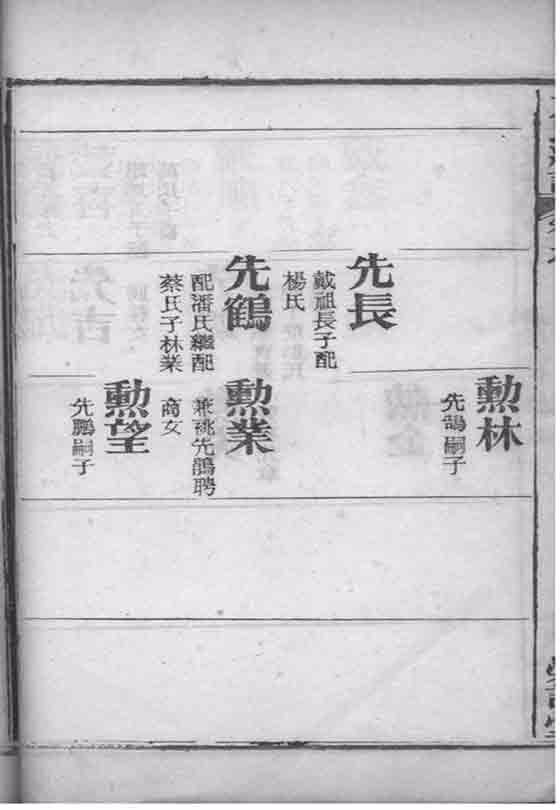 勳林
先鵠嗣子
先長
戴祖長子配
楊氏
先鶴
配潘氏繼配
蔡氏子林業
勳業
兼祧先鵠聘
商女
勳望
先鵬嗣子